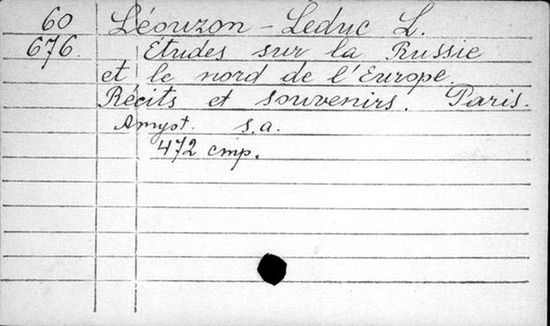 60 Léouzon-Leduc L.
676. Etudes sur la Russie
et le nord de l'Europe.
Récits et souvenirs. Paris.
Amyot. s.a.
472 cmp.